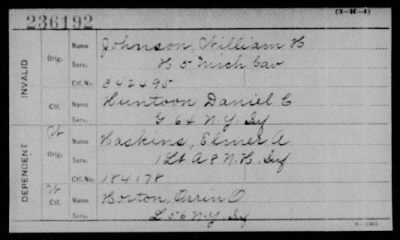 236192
(3-M-4)
INVALID
Orig.
Name Johnson, William H
Serv. H 5 Mich Cav
Ctf. No. 342495
Ctf.
Name Huntoon, Daniel C
Serv. G 64 N.Y. Inf
DEPENDENT
W
Orig.
Name Haskins, Elmer A
Serv. 1 Lt A 8 N.H. Inf
Ctf. No. 184178
W
Ctf.
Name Horton, Orrin O
Serv. L 56 N.Y. Inf